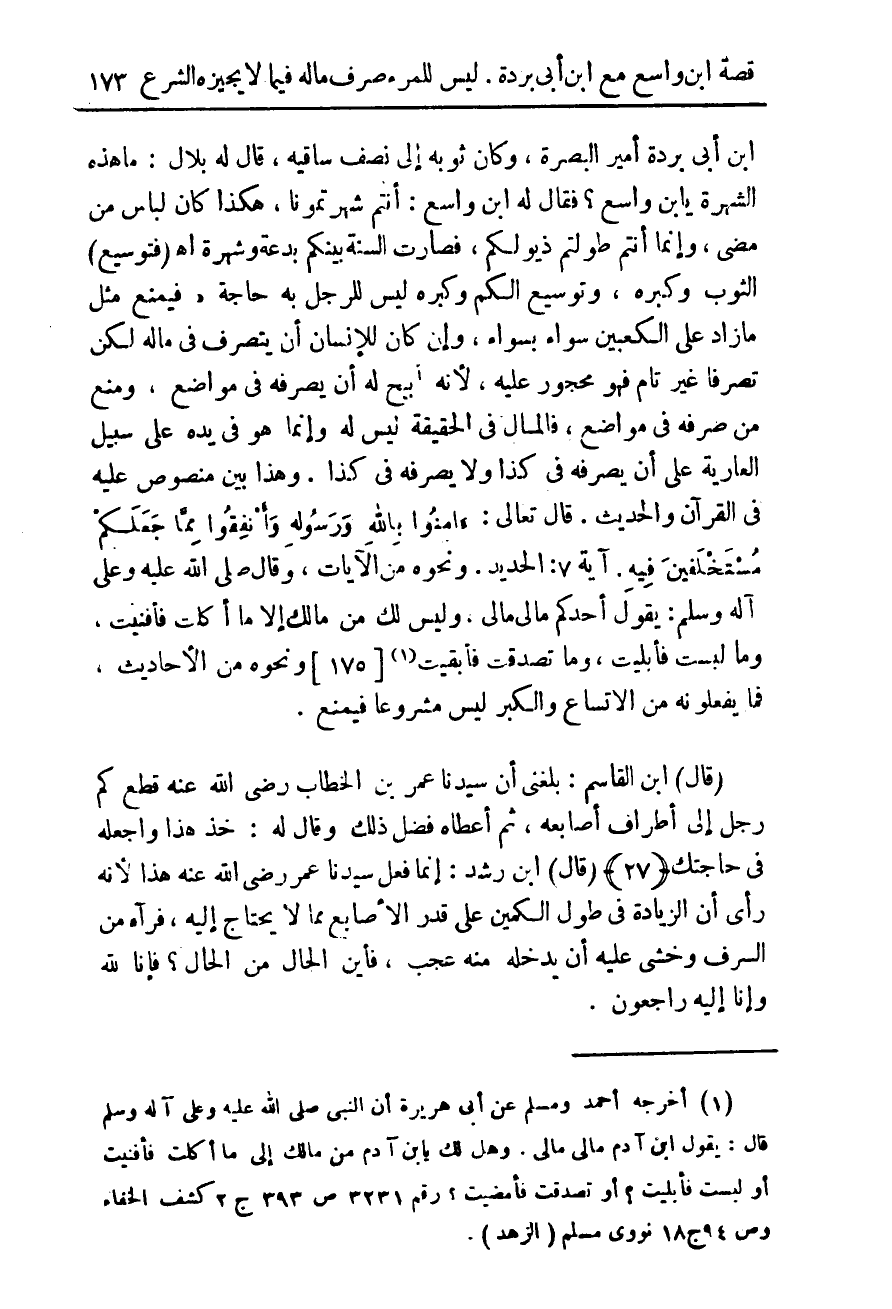 قصة ابن واسع مع ابن أبى بردة . ليس للمرء صرف ماله فيما لا يجيزه الشرع ١٧٣
ابن أبى بردة أمير البصرة ، وكان ثوبه إلى نصف ساقيه ، قال له بلال : ماهذه
الشهرة يابن واسع ؟ فقال له ابن واسع : أنتم شهرتمونا ، هكذا كان لباس من
مضى ، وإنما أنتم طولتم ذيولكم ، فصارت السنة بينكم بدعة وشهرة اه (فتوسيع)
الثوب وكبره ، وتوسيع الكم وكبره ليس للرجل به حاجة ، فيمنع مثل
مازاد على الكعبين سواء بسواء ، وإن كان للإنسان أن يتصرف فى ماله لكن
تصرفا غير تام فهو محجور عليه ، لأنه أبيح له أن يصرفه فى مواضع ، ومنع
من صرفه فى مواضع ، فالمال فى الحقيقة ليس له وإنما هو فى يده على سبيل
العارية على أن يصرفه فى كذا ولا يصرفه فى كذا . وهذا بين منصوص عليه
فى القرآن والحديث . قال تعالى : ءامِنُوا بِاللهِ وَرَسُولِهِ وَأَنْفِقُوا مِمَّا جَعَلَكمْ
مُسْتَخْلَفِينَ فِيهِ . آية ٧: الحديد . ونحوه من الآيات ، وقال صلى الله عليه وعلى
آله وسلم : يقول أحدكم مالى مالى ، وليس لك من مالك إلا ما أكلت فأفنيت ،
وما لبست فأبليت ، وما تصدقت فأبقيت(١) [ ١٧٥ ] ونحوه من الأحاديث ،
فما يفعلونه من الاتساع والكبر ليس مشروعا فيمنع .
(قال) ابن القاسم : بلغنى أن سيدنا عمر بن الخطاب رضى الله عنه قطع كم
رجل إلى أطراف أصابعه ، ثم أعطاه فضل ذلك وقال له : خذ هذا واجعله
فى حاجتك ﴿٢٧﴾ (قال) ابن رشد : إنما فعل سيدنا عمر رضى الله عنه هذا لأنه
رأى أن الزيادة فى طول الكمين على قدر الأصابع مما لا يحتاج إليه ، فرآه من
السرف وخشى عليه أن يدخله منه عجب ، فأين الحال من الحال ؟ فإنا لله
وإنا إليه راجعون .
(١) أخرجه أحمد ومسلم عن أبى هريرة أن النبى صلى الله عليه وعلى آله وسلم
قال : يقول ابن آدم مالى مالى . وهل لك يابن آدم من مالك إلى ما أكلت فأفنيت
أو لبست فأبليت ؟ أو تصدقت فأمضيت ؟ رقم ٣٢٣١ ص ٣٩٣ ج ٢ كشف الخفاء
وص ٩٤ ج ١٨ نووى مسلم ( الزهد ) .